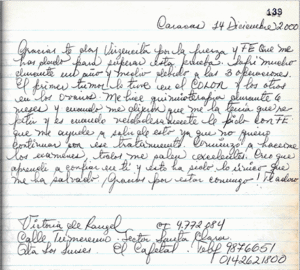 139
Caracas 14 Diciembre 2000
Gracias te doy Virgencita por la fuerza y FE que me
has dado para superar esta prueba. Sufrí mucho
durante un año y medio debido a las 3 operaciones.
El primer tumor lo tuve en el COLON y los otros
en los ovarios. Me hice quimioterapia durante 6
meses y cuando me dijeron que me la tenía que re-
petir y es cuando nuevamente le pido con FE
que me ayude a salir de esto ya que no quiero
continuar con ese tratamiento. Comienzo a hacerme
los exámenes, todos me salen excelentes. Creo que
aprendí a confiar en ti y esto ha sido lo único que
me ha salvado ¡Gracias por estar conmigo! Te adoro
Victoria de Rangel CI 4.772.084
Calle Sector Santa Clara
El Cafetal. 9876651
0142621800